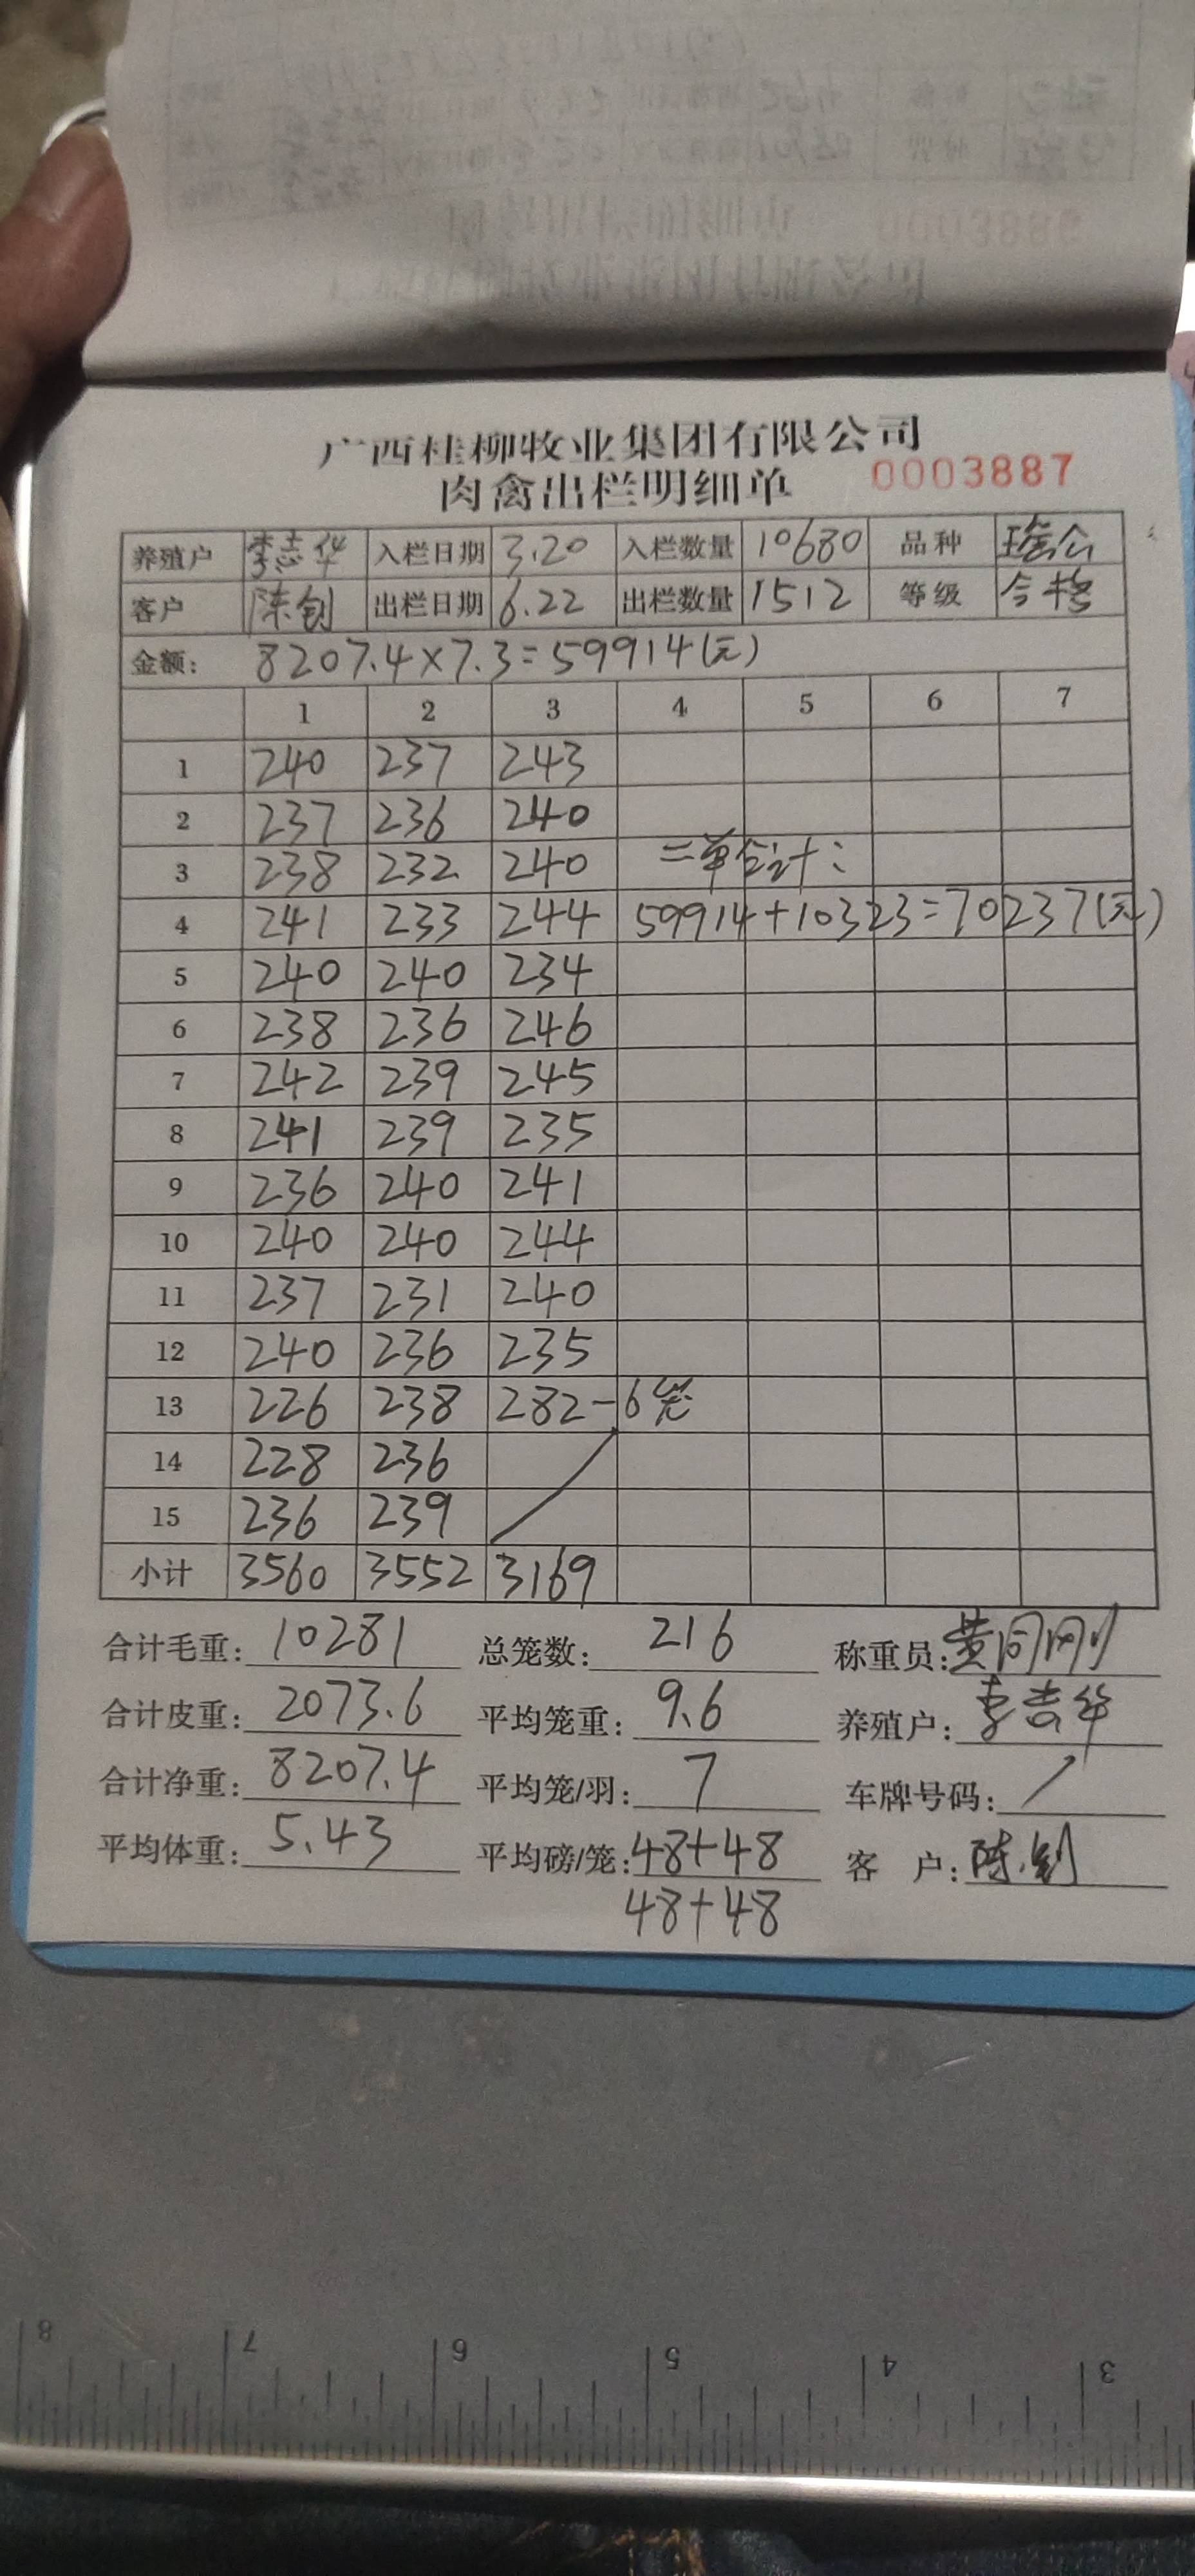 广西桂柳牧业集团有限公司
肉禽出栏明细单 0003887
养殖户 李志华 入栏日期 3.20 入栏数量 10680 品种 瑶公
客户 陈钊 出栏日期 6.22 出栏数量 1512 等级 合格
金额: 8207.4×7.3=59914(元)
1 2 3 4 5 6 7
1 240 237 243
2 237 236 240
3 238 232 240 二单合计:
4 241 233 244 59914+10323=70237(元)
5 240 240 234
6 238 236 246
7 242 239 245
8 241 239 235
9 236 240 241
10 240 240 244
11 237 231 240
12 240 236 235
13 226 238 282-6笼
14 228 236
15 236 239
小计 3560 3552 3169
合计毛重: 10281 总笼数: 216 称重员: 黄同刚
合计皮重: 2073.6 平均笼重: 9.6 养殖户: 李志华
合计净重: 8207.4 平均笼/羽: 7 车牌号码: /
平均体重: 5.43 平均磅/笼: 48+48 客户: 陈钊
48+48
8 7 6 5 4 3